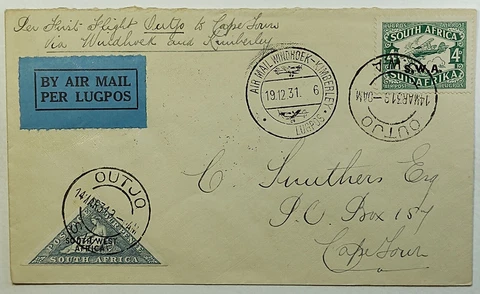 Per First Flight Outjo to Cape Town
Via Windhoek and Kimberley
BY AIR MAIL
PER LUGPOS
AIR MAIL WINDHOEK-KIMBERLEY
19.12.31. 6
LUGPOS
SOUTH AFRICA
LUGPOS
4D
S.W.A.
SUIDAFRIKA
OUTJO
OUTJO
SOUTH WEST
AFRICA
SOUTH AFRICA
C. Smithers Esq
P.O. Box 157
Cape Town